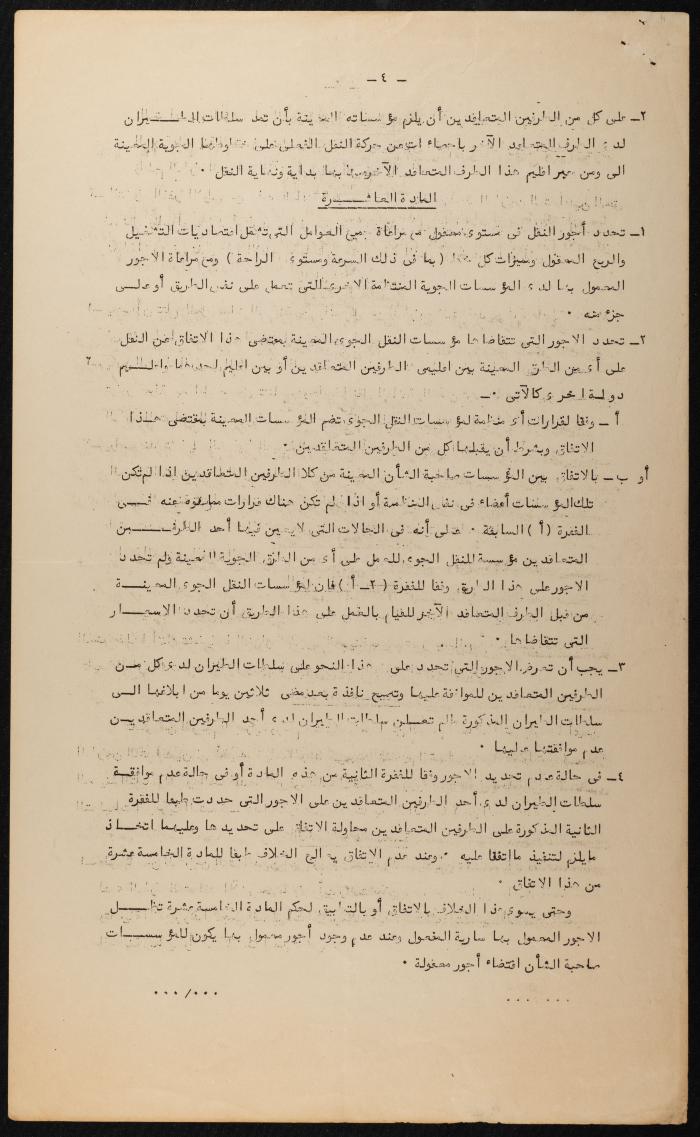 - ٤ -
٢ـ على كل من الطرفين المتعاقدين أن يلزم مؤسساته المعينة بأن تمد سلطات الطـــيران
لدى الطرف المتعاقد الآخر باحصاءات عن حركة النقل الفعلى على خطوطها الجوية المعينة
الى ومن عبر اقليم هذا الطرف المتعاقد الآخر بما بها بداية ونهاية النقل ٠
المادة العاشـــرة
١ـ تحدد أجور النقل فى مستوى معقول مع مراعاة جميع العوامل التى تشمل اقتصاديات التشغيل
والربح المعقول ومميزات كل خط ( بما فى ذلك السرعة ومستوى الراحة ) ومع مراعاة الاجور
المعمول بها لدى المؤسسات الجوية المنتظمة الاخرى التى تعمل على نفس الطريق أو على
جزء منه ٠
٢ـ تحدد الاجور التى تتقاضاها مؤسسات النقل الجوى المعينة بمقتضى هذا الاتفاق عن النقل
على أى من الطرق المعينة بين اقليمى الطرفين المتعاقدين أو بين اقليم احدهما واقليم
دولة اخرى كالآتى ٠ـ
أ ـ وفقا لقرارات أى منظمة لمؤسسات النقل الجوى تضم المؤسسات المعينة بمقتضى هـذا
الاتفاق وبشرط أن يقبلها كل من الطرفين المتعاقدين ٠
أو ب ـ بالاتفاق بين المؤسسات صاحبة الشأن المعينة من كلا الطرفين المتعاقدين اذا لم تكن
تلك المؤسسات أعضاء فى نفس المنظمة أو اذا لم تكن هناك قرارات مما هو منوه عنه فــى
الفقرة ( أ ) السابقة ٠ على أنه فى الحالات التى لا يعين فيها أحد الطرفـــين
المتعاقدين مؤسسة للنقل الجوى للعمل على أى من الطرق الجوية المعينة ولم تحدد
الاجور على هذا الطريق وفقا للفقرة ( ٢ـ أ ) فان لمؤسسات النقل الجوى المعينـــة
من قبل الطرف المتعاقد الآخر للقيام بالعمل على هذا الطريق أن تحدد الاسعـــار
التى تتقاضاها ٠
٣ـ يجب أن تعرض الاجور التى تحدد على هذا النحو على سلطات الطيران لدى كل مـن
الطرفين المتعاقدين للموافقة عليها وتصبح نافذة بعد مضى ثلاثين يوما من ابلاغها الـى
سلطات الطيران المذكورة مالم تعلن سلطات الطيران لدى أحد الطرفين المتعاقديـن
عدم موافقتها عليها ٠
٤ـ فى حالة عدم تحديد الاجور وفقا للفقرة الثانية من هذه المادة أو فى حالة عدم موافقـة
سلطات الطيران لدى أحد الطرفين المتعاقدين على الاجور التى حددت طبقا للفقرة
الثانية المذكورة على الطرفين المتعاقدين محاولة الاتفاق على تحديدها وعليهما اتخـاذ
مايلزم لتنفيذ ما اتفقا عليه ٠ وعند عدم الاتفاق يعالج الخلاف طبقا للمادة الخامسة عشرة
من هذا الاتفاق ٠
وحتى يسوى هذا الخلاف بالاتفاق أو بالتطبيق لحكم المادة الخامسة عشرة تظـــل
الاجور المعمول بها سارية المفعول وعند عدم وجود أجور معمول بها يكون للمؤسســـات
صاحبة الشأن اقتضاء أجور معقولة ٠
٠٠٠/٠٠٠